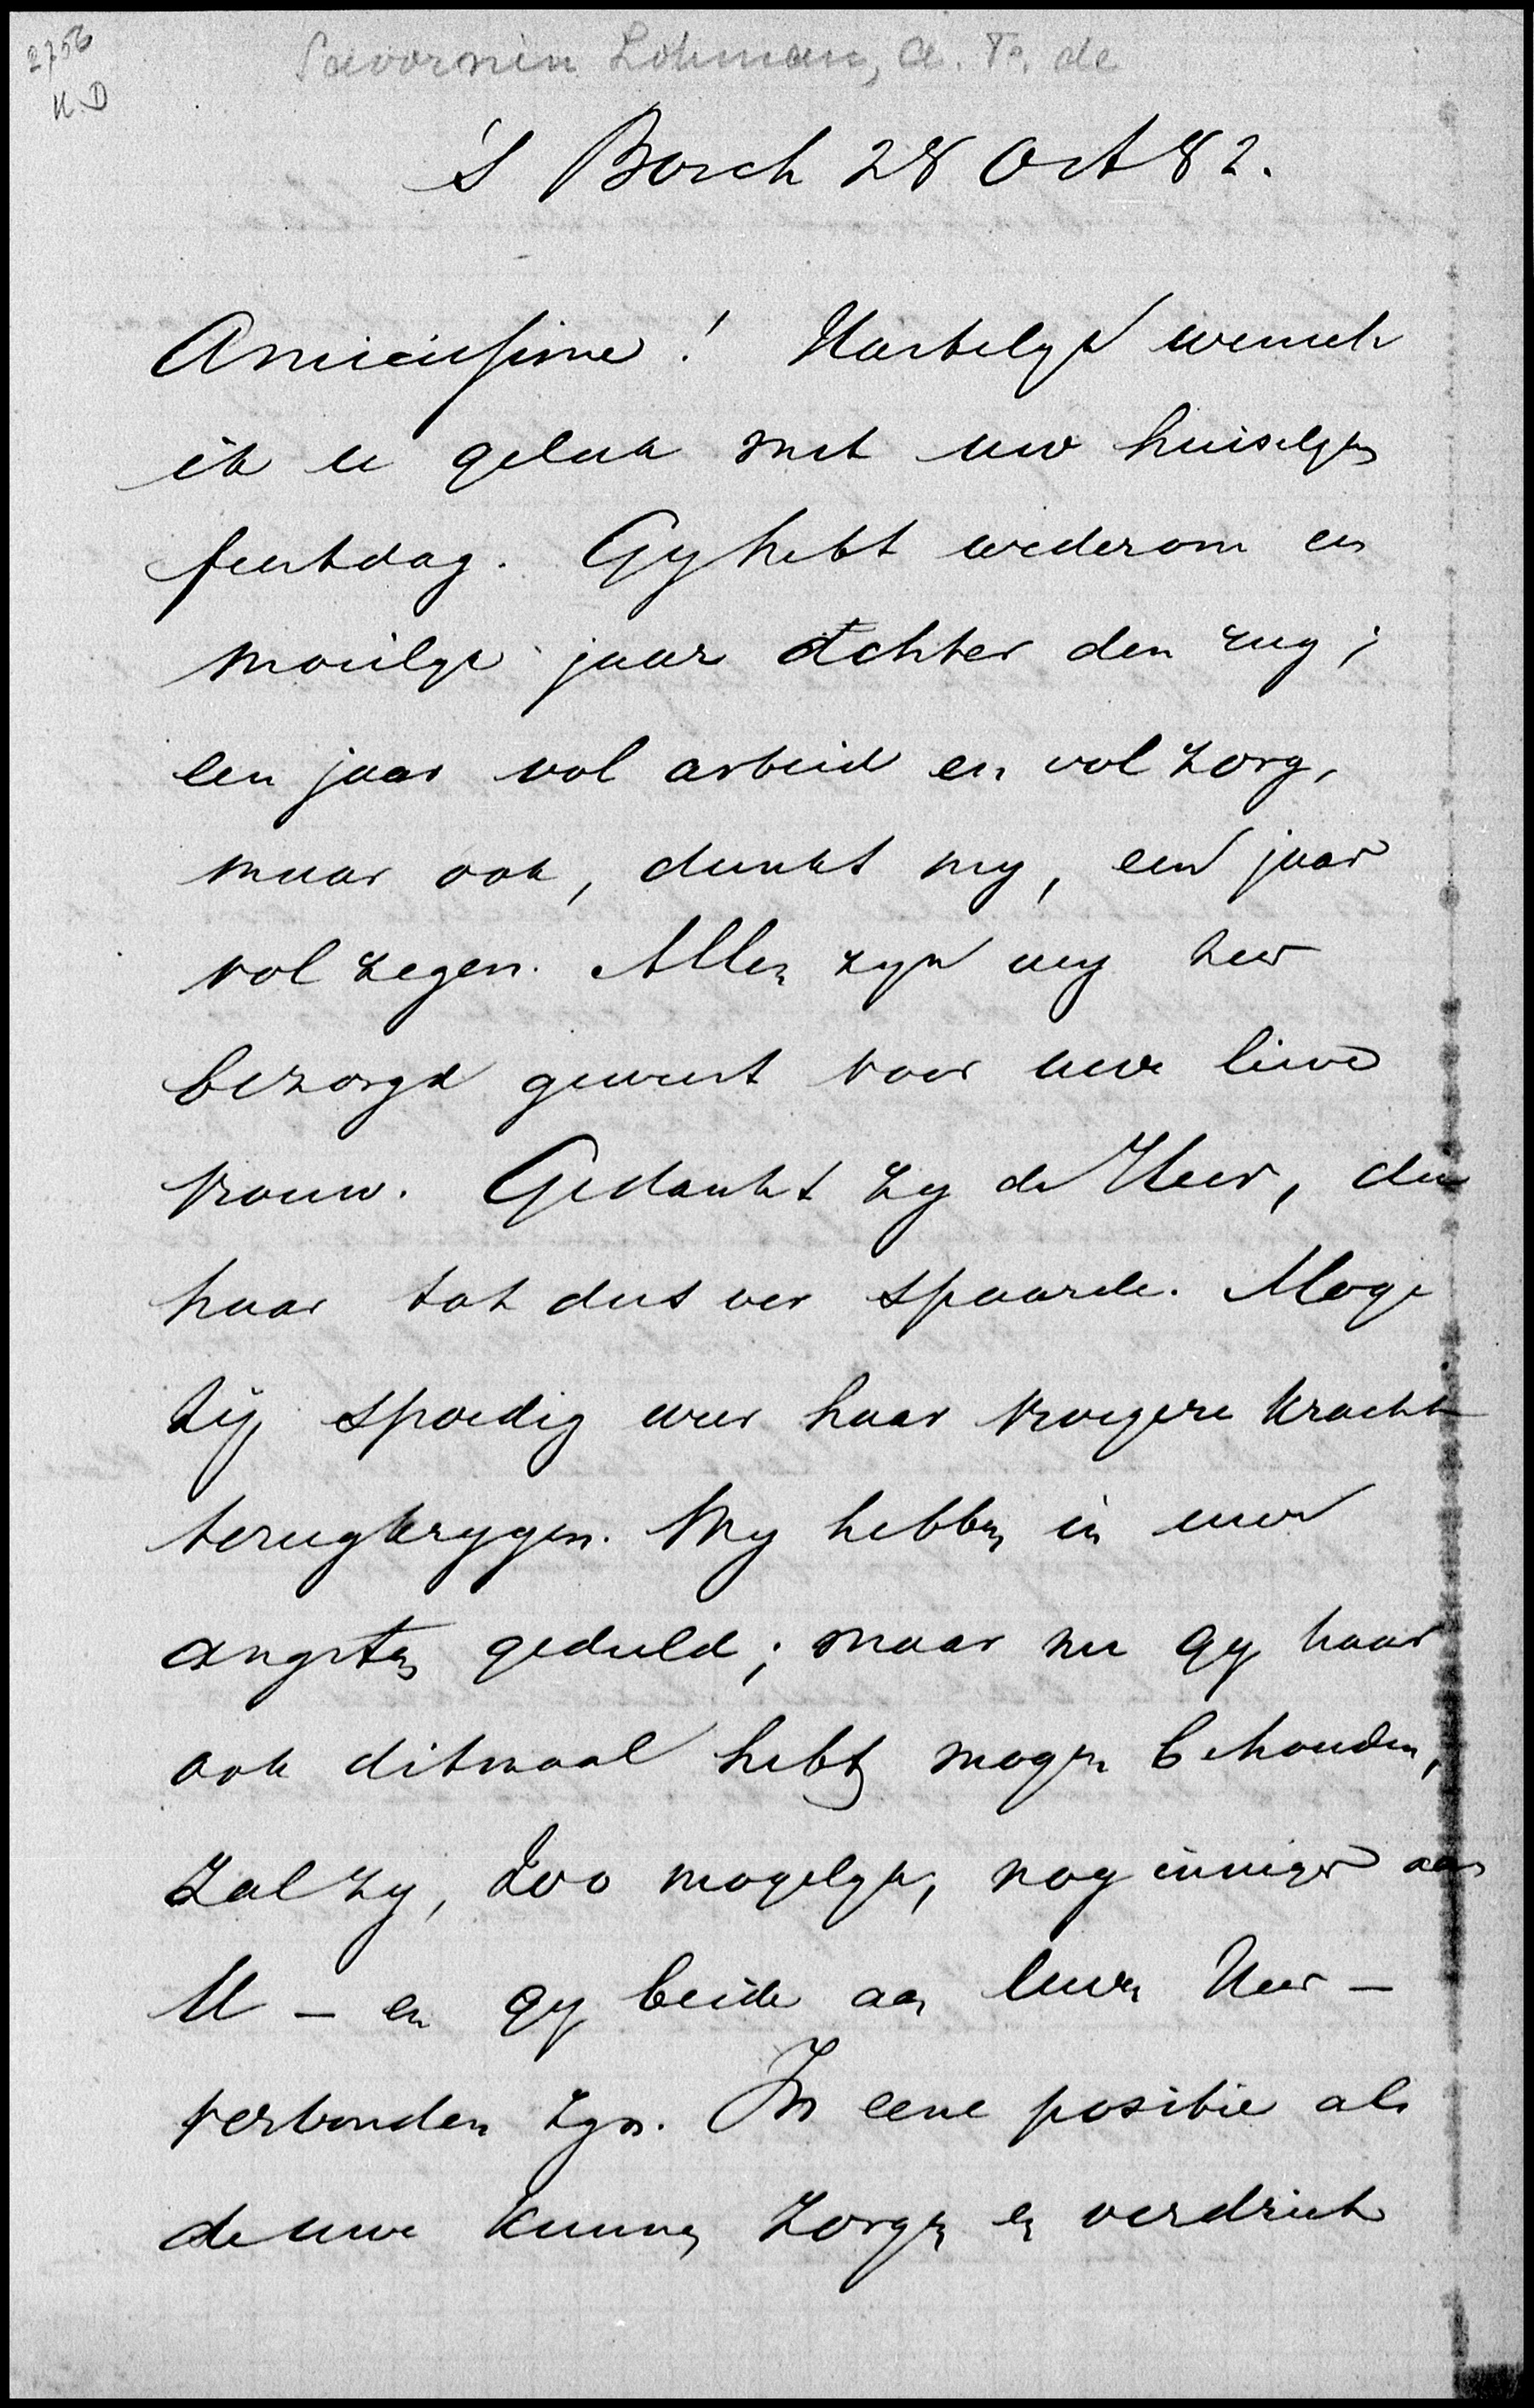 2756
K.D
Savornin Lohman, A. F. de
's Bosch 28 Oct 82.
Amicissime! Hartelyk wensch
ik u geluk met uw huiselyken
feestdag. Gy hebt wederom een
moeilyk jaar achter den rug;
een jaar vol arbeid en vol zorg,
maar ook, dunkt my, een jaar
vol zegen. Allen zyn wy zeer
bezorgd geweest voor uwe lieve
vrouw. Gedankt zy de Heer, die
haar tot dus ver spaarde. Moge
zij spoedig weer haar vroegere kracht
terugkrygen. Wy hebben in uwe
angsten gedeeld; maar nu gy haar
ook ditmaal hebt mogen behouden,
zal zy, zoo mogelyk, nog inniger aan
U – en gy beide aan Uwen Heer –
verbonden zyn. In eene positie als
de uwe kunnen zorgen en verdriet